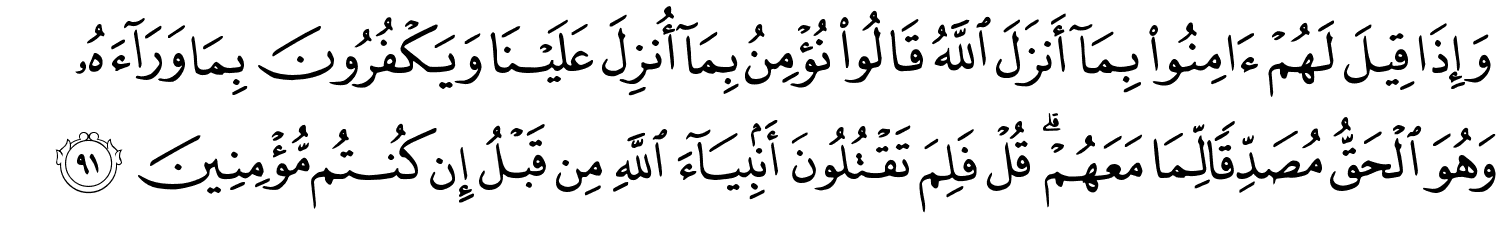 وَإِذَا قِيلَ لَهُمْ ءَامِنُوا۟ بِمَآ أَنزَلَ ٱللَّهُ قَالُوا۟ نُؤْمِنُ بِمَآ أُنزِلَ عَلَيْنَا وَيَكْفُرُونَ بِمَا وَرَآءَهُۥ
وَهُوَ ٱلْحَقُّ مُصَدِّقًا لِّمَا مَعَهُمْ ۗ قُلْ فَلِمَ تَقْتُلُونَ أَنۢبِيَآءَ ٱللَّهِ مِن قَبْلُ إِن كُنتُم مُّؤْمِنِينَ ٩١